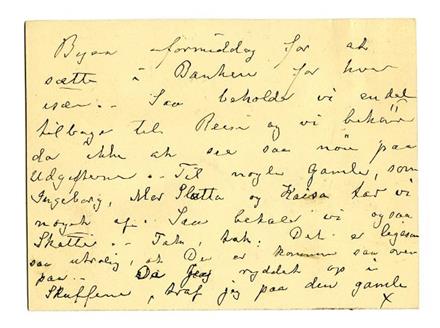 Byen iformiddag for at
sætte i Banken for hver
især. - Saa beholder vi en del
tilbage til Reise og vi behøver
da ikke at see saa nöie paa
Udgifterne. - Til nogle Gamle, som
Ingeborg, Mor Slotta og Kaisa tar vi
noget af. Saa betaler vi ogsaa
Skatte. - Tak, tak! Det er ligesom
saa utrolig, at De er kommen saa over
paa. - Da Jeg ryddet op i
Skuffene, traf jeg paa den gamle
x